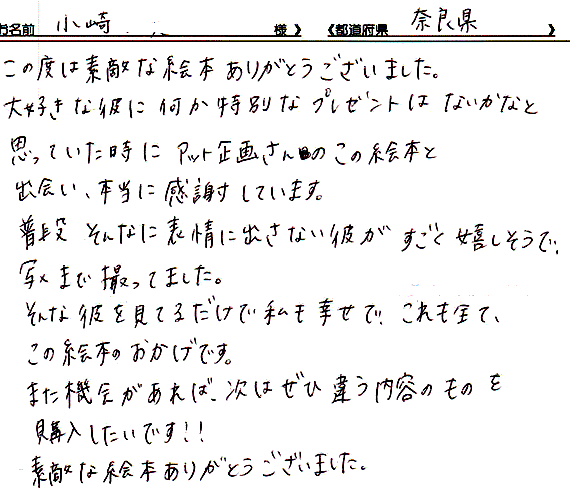 お名前 小崎 様 》 《都道府県 奈良県 》
この度は素敵な絵本ありがとうございました。
大好きな彼に何か特別なプレゼントはないかなと
思っていた時にアット企画さんのこの絵本と
出会い、本当に感謝しています。
普段そんなに表情に出さない彼がすごく嬉しそうで、
写メまで撮ってました。
そんな彼を見てるだけで私も幸せで、これも全て、
この絵本のおかげです。
また機会があれば、次はぜひ違う内容のものを
購入したいです!!
素敵な絵本ありがとうございました。